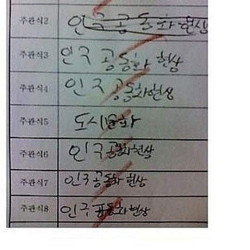 주관식2 인구공동화현상
주관식3 인구 공동화 현상
주관식4 인구 공동화현상
주관식5 도시화
주관식6 인구 공동화현상
주관식7 인구공동화 현상
주관식8 인구 공동화현상